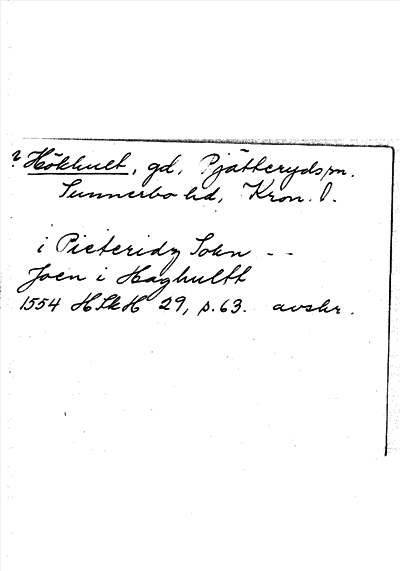 ? Hökhult, gd, Pjätteryds sn.
Sunnerbo hd, Kron. l.
i Pieteridz Sokn - -
Joen i Haghultt
1554 HSkH 29, p. 63. avskr.